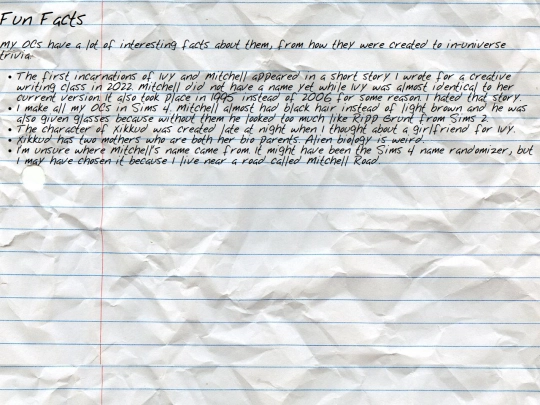 Fun Facts
My OCs have a lot of interesting facts about them, from how they were created to in-universe
trivia.
• The first incarnations of Ivy and Mitchell appeared in a short story I wrote for a creative
writing class in 2022. Mitchell did not have a name yet while Ivy was almost identical to her
current version. It also took place in 1995 instead of 2006 for some reason. I hated that story.
• I make all my OCs in Sims 4. Mitchell almost had black hair instead of light brown and he was
also given glasses because without them he looked too much like Ripp Grunt from Sims 2.
• The character of Xikkud was created late at night when I thought about a girlfriend for Ivy.
• Xikkud has two mothers who are both her bio parents. Alien biology is weird.
• I'm unsure where Mitchell's name came from. It might have been the Sims 4 name randomizer, but
I may have chosen it because I live near a road called Mitchell Road.